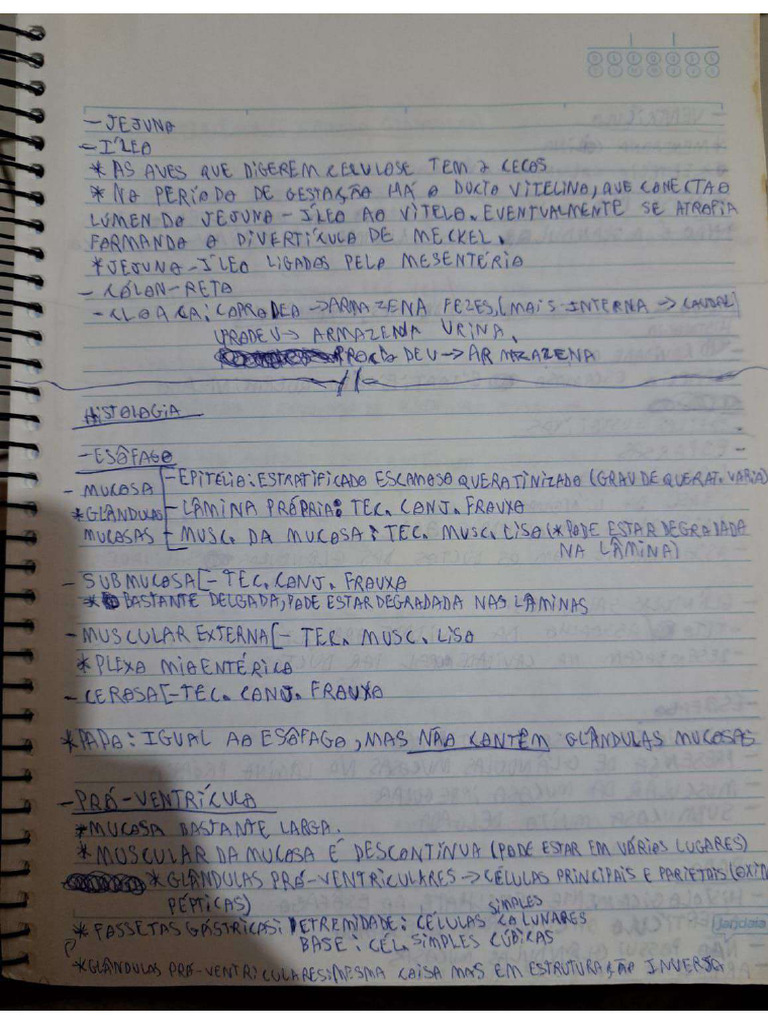 - JEJUNO
- ÍLEO
* AS AVES QUE DIGEREM CELULOSE TEM 2 CECOS
* NO PERÍODO DE GESTAÇÃO HÁ O DUCTO VITELINO, QUE CONECTA O
LÚMEN DO JEJUNO-ÍLEO AO VITELO. EVENTUALMENTE SE ATROFIA
FORMANDO O DIVERTÍCULO DE MECKEL.
* JEJUNO-ÍLEO LIGADOS PELO MESENTÉRIO
- CÓLON-RETO
- CLOACA: COPRODEO → ARMAZENA FEZES, (MAIS INTERNA → CAUDAL)
URODEU → ARMAZENA URINA.
PROCTODEU → ARMAZAZENA
HISTOLOGIA
- ESÔFAGO
- MUCOSA [- EPITÉLIO: ESTRATIFICADO ESCAMOSO QUERATINIZADO (GRAU DE QUERAT. VARIA)
* GLÂNDULAS - LÂMINA PRÓPRIA: TEC. CONJ. FROUXO
MUCOSAS - MUSC. DA MUCOSA: TEC. MUSC. LISO (* PODE ESTAR DEGRADADA
NA LÂMINA)
- SUBMUCOSA [- TEC. CONJ. FROUXO
* BASTANTE DELGADA, PODE ESTAR DEGRADADA NAS LÂMINAS
- MUSCULAR EXTERNA [- TEC. MUSC. LISO
* PLEXO MIOENTÉRICO
- CEROSA [- TEC. CONJ. FROUXO
* PAPO: IGUAL AO ESÔFAGO, MAS NÃO CONTÊM GLÂNDULAS MUCOSAS
- PRÓ-VENTRÍCULO
* MUCOSA BASTANTE LARGA.
* MUSCULAR DA MUCOSA É DESCONTÍNUA (PODE ESTAR EM VÁRIOS LUGARES)
* GLÂNDULAS PRÓ-VENTRICULARES → CÉLULAS PRINCIPAIS E PARIETAIS (OXINTO
PÉPTICAS)
* FOSSETAS GÁSTRICAS: EXTREMIDADE: CÉLULAS SIMPLES COLUNARES
BASE: CÉL. SIMPLES CÚBICAS
* GLÂNDULAS PRÓ-VENTRICULARES: MESMA COISA MAS EM ESTRUTURAÇÃO INVERSA
Jandaia